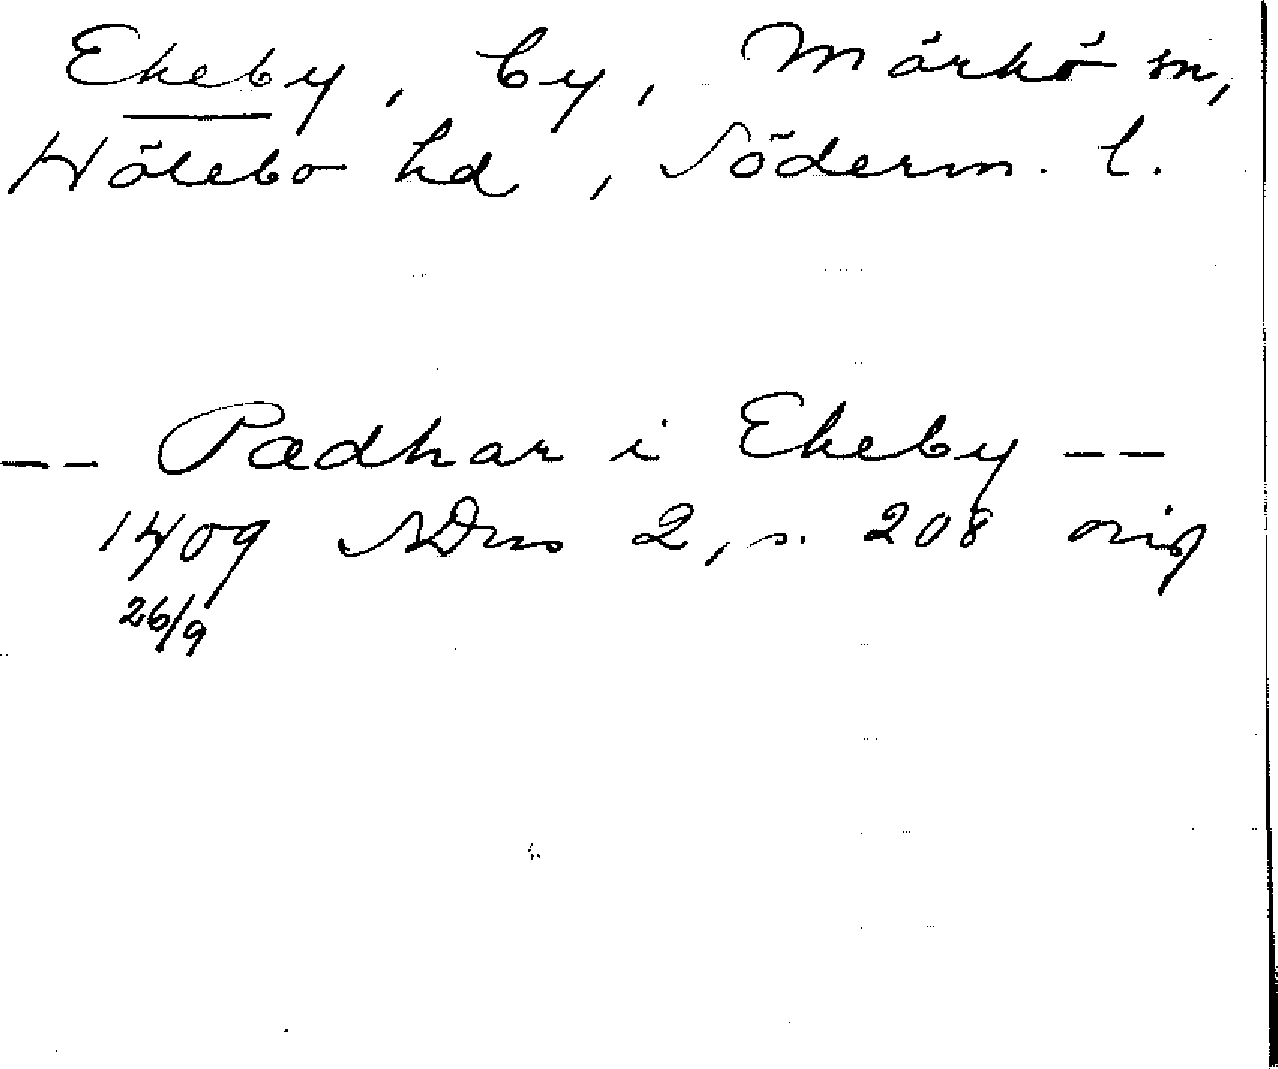 Ekeby, by, Mörkö sn,
Hölebo hd, Söderm. l.
-- Pædhar i Ekeby --
1409 SDns 2, s. 208 orig
26/9